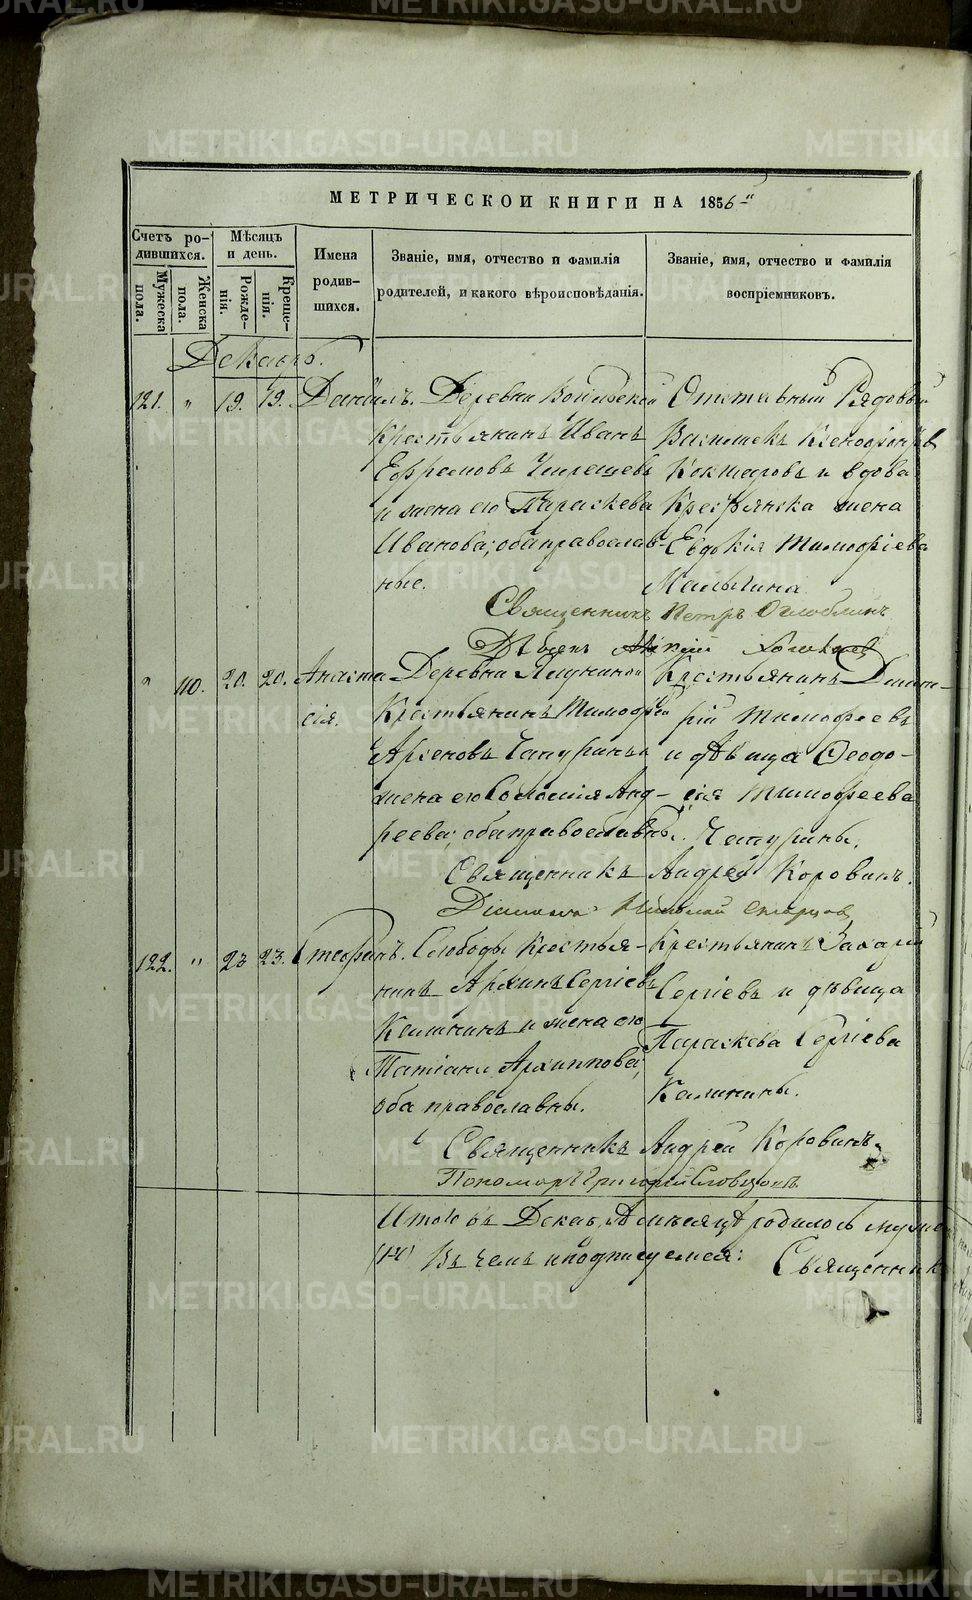 МЕТРИЧЕСКОЙ КНИГИ НА 1856-й
Счетъ родившихся.
Мужеска пола.
Женска пола.
Мѣсяцъ и день.
Рожденія.
Крещенія.
Имена родившихся.
Званіе, имя, отчество и фамилія родителей, и какого вѣроисповѣданія.
Званіе, имя, отчество и фамилія воспріемниковъ.
Декабрь.
121. " 19. 19. Даніилъ.
Деревни
Крестьянинъ Иванъ
Ефремовъ
и жена его Параскева
Иванова; оба православ-
ные.
Отставный Рядовый
Ксенофонтовъ
и вдова
Крестьянска жена
Евдокія Тимофіева
Малыгина
Священникъ Петръ Оглоблинъ
" 110. 20. 20. Анаста-
сія.
Деревни
Крестьянинъ Тимофей
Чапуринъ и
жена его Соломія Анд-
реева; оба православны.
Крестьянинъ Дмит-
рій Тимофеевъ
и дѣвица Ѳеодо-
сія Тимофеева
Чапурины.
Священникъ Андрей Коровинъ.
122. " 23 23. Стефанъ.
Слободы Крестья-
нинъ Архипъ Сергіевъ
Калининъ и жена его
Татіана Архиппова;
оба православны.
Крестьянинъ Захарій
Сергіевъ и дѣвица
Параскева Сергіева
Калинины.
Священникъ Андрей Коровинъ
Пономарь Григорій Словцовъ
Итого въ Декабрѣ мѣсяцѣ родилось
Въ чемъ и подписуемся: Священникъ
METRIKI.GASO-URAL.RU